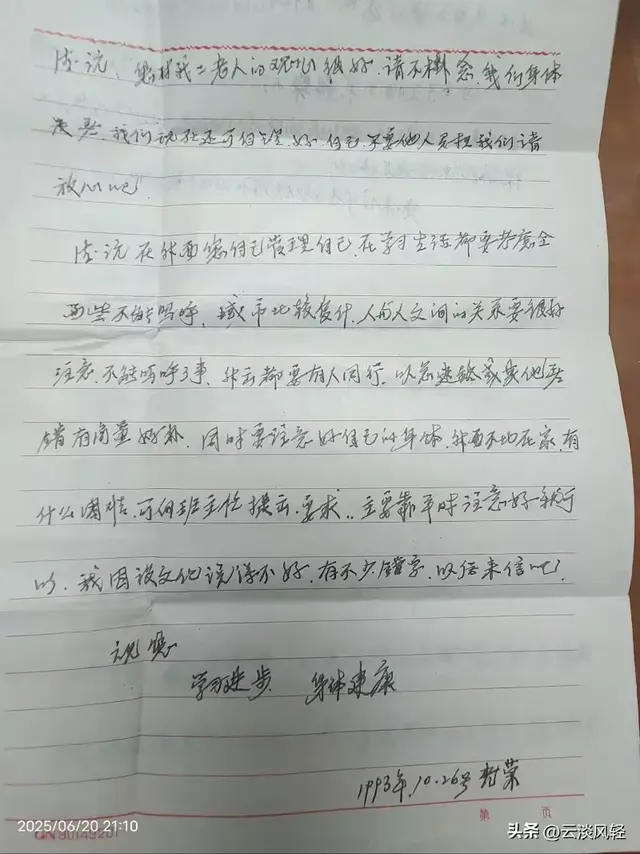 您对我二老人的观心很好,请不掛念,我们身体
我们现在还可自理,好 自己 不要他人 我们请
放心吧!
在外面您自己管理自己,在学习生活都要考虑全
面些不能呜呼,城市比较复什,人与人之间的关系要很好
注意,不能呜呼了事,外去都要有人同行,以忘迷路或其他
错有商量好办,同时要注意好自己的身体,外面不比在家,有
什么困难,可向班主任提出,要求,主要靠平时注意好就可
以,我因该文化说得不好,有不少错字,以后来信吧!
祝您
学习进步 身体建康
1993年,10.26号 荣
第 页
2025/06/20 21:10
QN 90149201
头条 @云淡风轻